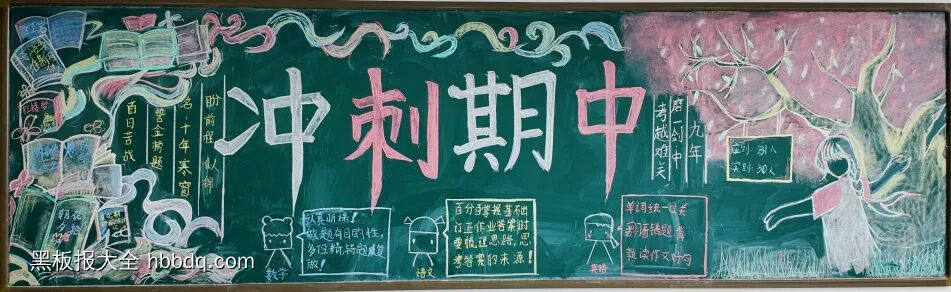 冲刺期中
百日苦战
誓金榜题
名,十年寒窗
盼前程似
九年
磨一剑中
考越难关
应到:31人
实到:30人
认真听课!
做题有目的性,
多做精,错题反复
做!
数学
百分百掌握基础
订正作业答案时
要悟过思路,思
考答案的来源!
语文
单词统一过关
错题类
熟读作文好句
英语
红楼梦
朝花
夕拾
黑板报大全 hbbdq.com